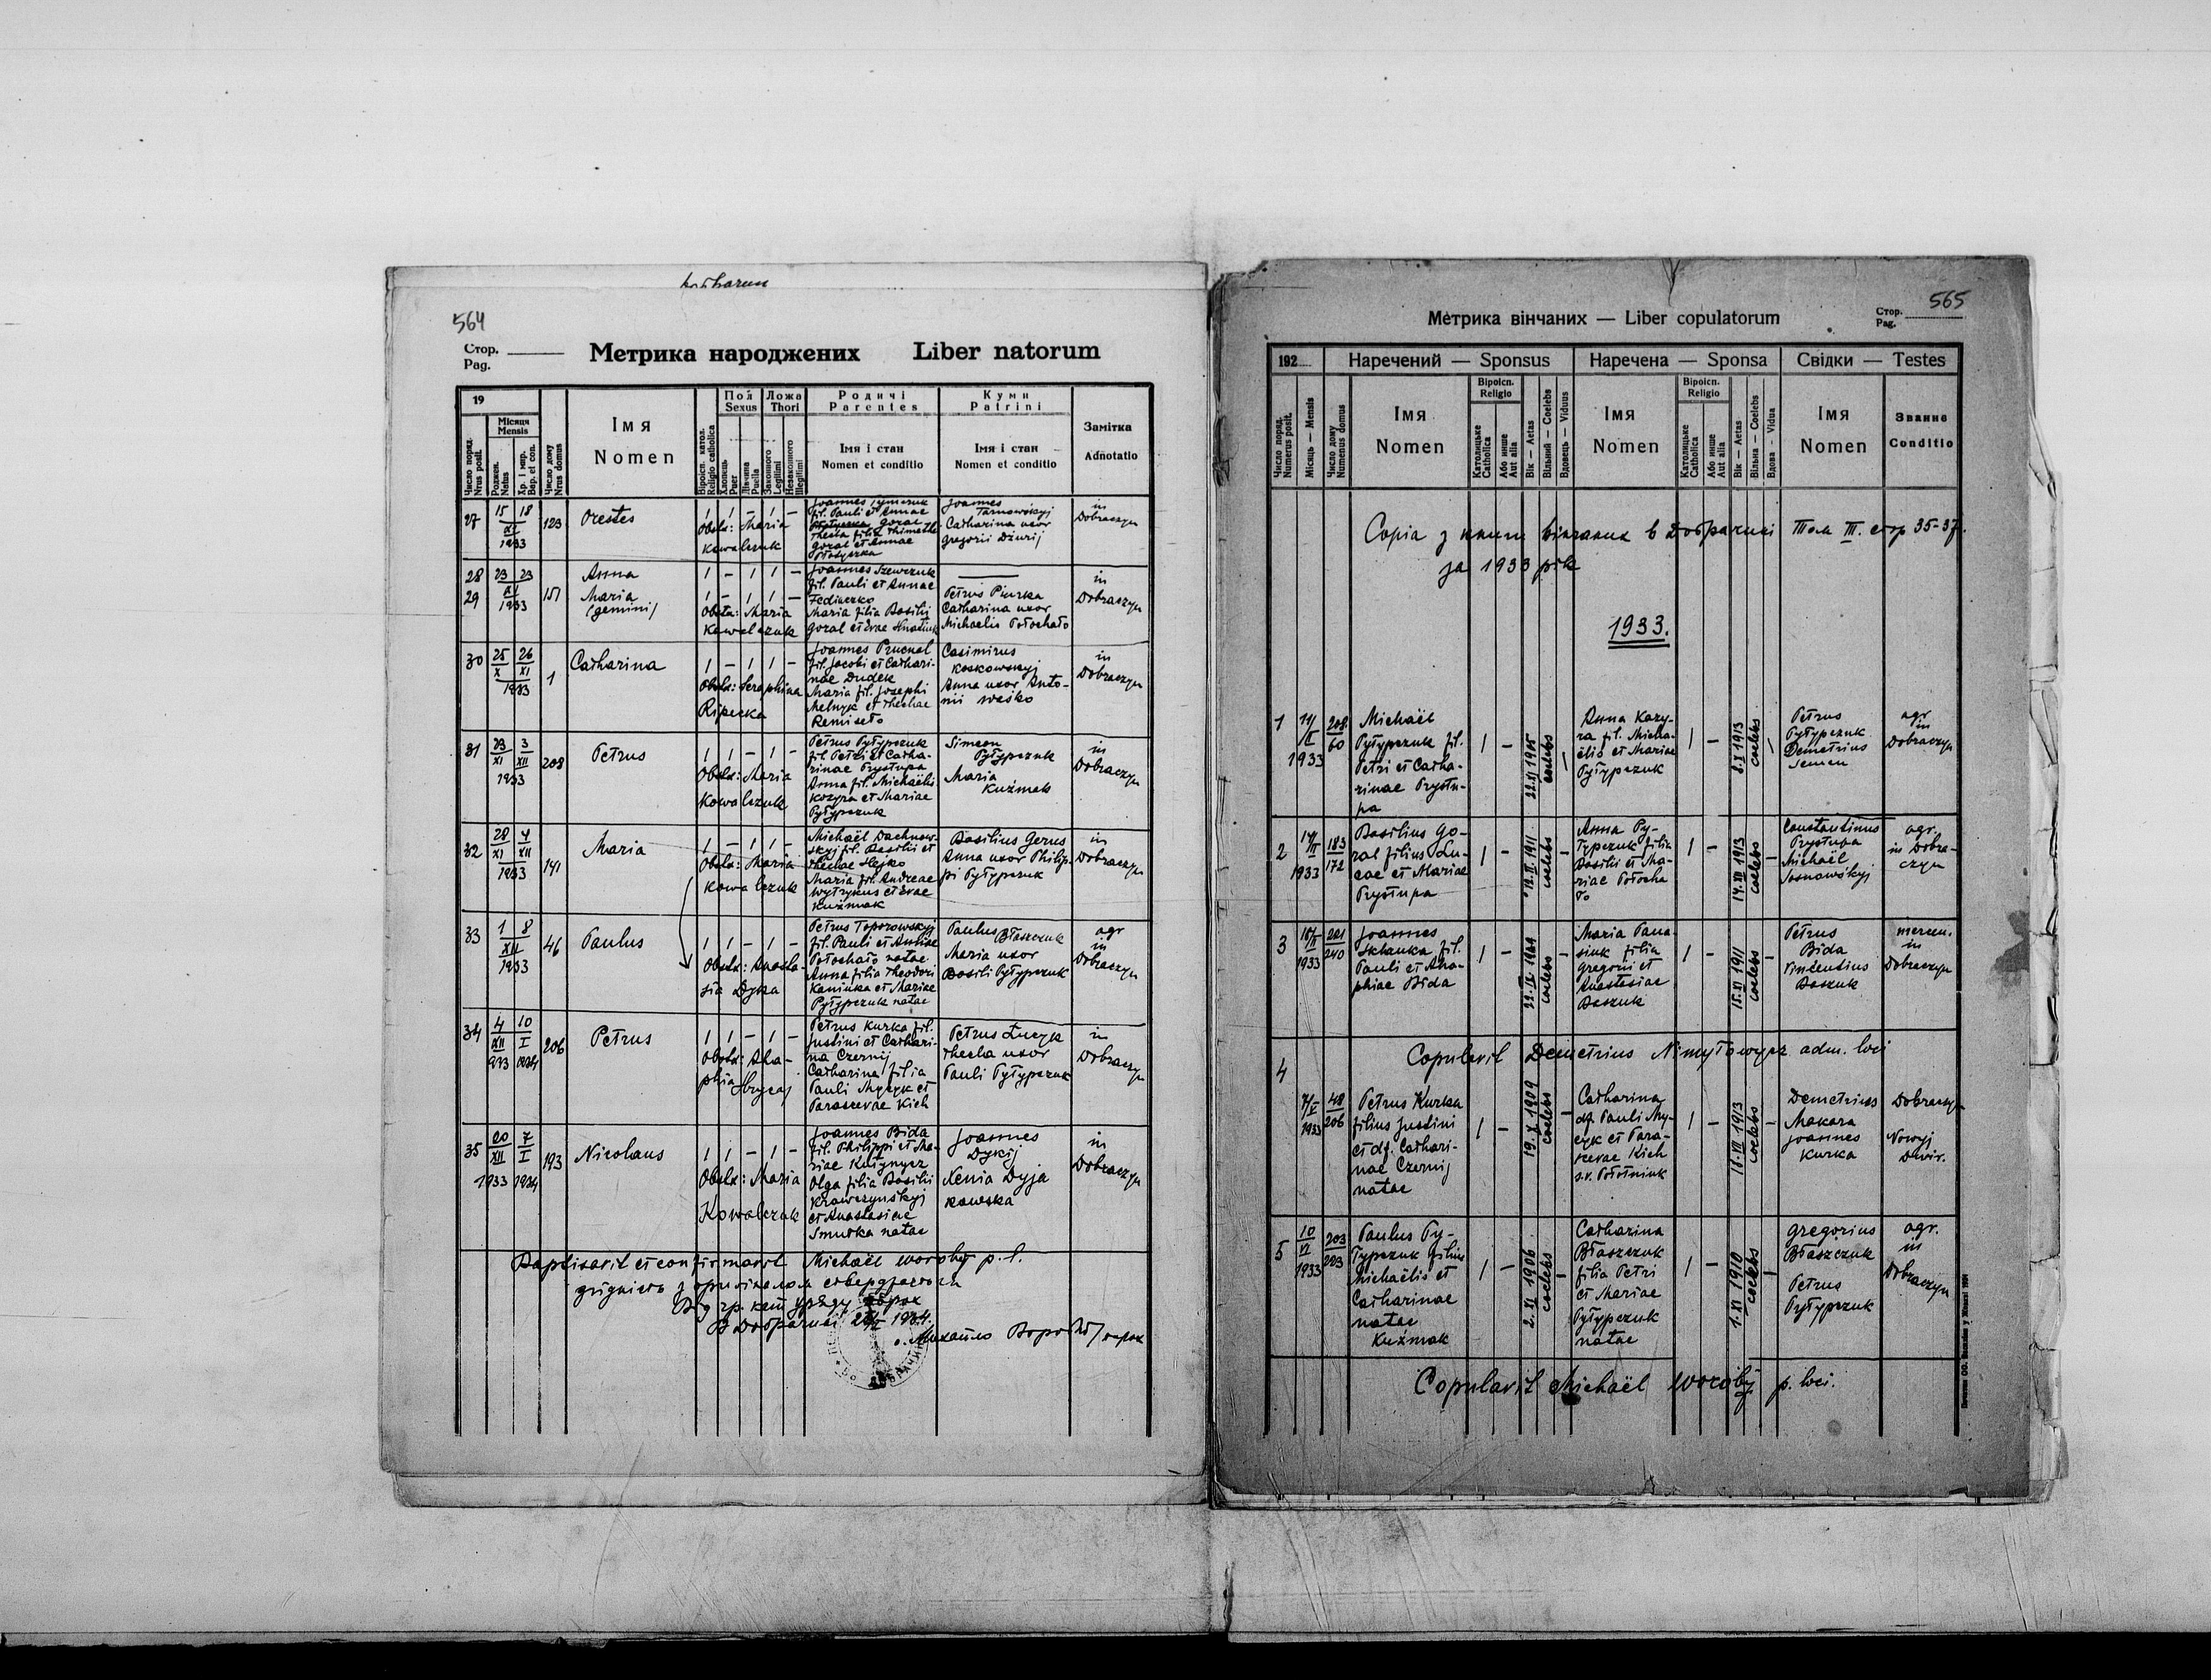 kotharum
564
Стор.
Pag.
Метрика народжених Liber natorum
19
Місяця
Mensis
Число поряд.
Nrus posit.
Роджен.
Natus
Хр. і мир.
Bap. et con.
Число дому
Nrus domus
Імя
Nomen
Віроісп. катол.
Religio catholica
Пол
Sexus
Хлопець
Puer
Дівчина
Puella
Ложа
Thori
Законного
Legitimi
Незаконного
Illegitimi
Родичі
Parentes
Імя і стан
Nomen et conditio
Куми
Patrini
Імя і стан
Nomen et conditio
Замітка
Adnotatio
27
15 18
XI
1933
123
Orestes
1 1 - 1 -
Obstx: Maria
Kowalczuk
Joannes Symczuk
fil. Pauli et Annae
Goral
Thecla filia Thimothe
Goral et Annae
Joannes
Tarnowskyj
Catharina uxor
Gregorii Dżurij
in
Dobraczyn
28
29
23 23
XI
1933
151
Anna
Maria
(gemini)
1 - 1 1 -
1 - 1 1 -
Obstx: Maria
Kowalczuk
Joannes Szewczuk
fil. Pauli et Annae
Fedineżko
Maria filia Basilii
Goral et Evae Hnatiuk
Petrus Piurka
Catharina uxor
Michaelis Potochato
in
Dobraczyn
30
25 26
X XI
1933
1
Catharina
1 - 1 1 -
Obstx: Seraphina
Ripecka
Joannes Pruchal
fil. Jacobi et Cathari-
nae Dudek
Maria fil. Josephi
Melnyk et Theclae
Remiseto
Casimirus
Koskowskyj
Anna uxor Anto-
nii Weśko
in
Dobraczyn
31
23 3
XI XII
1933
208
Petrus
1 1 - 1 -
Obstx: Maria
Kowalczuk
Petrus Pyłypczuk
fil. Petri et Catha-
rinae Prystupa
Anna fil. Michaëlis
Kozyra et Mariae
Pyłypczuk
Simeon
Pyłypczuk
Maria
Kuźmak
in
Dobraczyn
32
28 4
XI XII
1933
141
Maria
1 - 1 1 -
Obstx: Maria
Kowalczuk
Michaël Dachnow-
skyj fil. Basilii et
Theclae Hejko
Maria fil. Andreae
Wytrykus et Evae
Kuźmak
Basilius Gerus
Anna uxor Philip-
pi Pyłypczuk
in
Dobraczyn
33
1 8
XII
1933
46
Paulus
1 1 - 1 -
Obstx: Anasta-
sia Dyka
Petrus Toporowskyj
fil. Pauli et Annae
Potochato natae
Anna filia Theodori
Kaninka et Mariae
Pyłypczuk natae
Paulus Błaszczuk
Maria uxor
Basili Pyłypczuk
agr
in
Dobraczyn
34
4 10
XII I
933 1934
206
Petrus
1 1 - 1 -
Obstx: Aha-
phia Hrycaj
Petrus Kurka fil.
Justini et Cathari-
na Czernij
Catharina filia
Pauli Mycyk et
Parascevae Kich
Petrus Łucyk
Thecla uxor
Pauli Pyłypczuk
in
Dobraczyn
35
20 7
XII I
1933 1934
193
Nicolaus
1 1 - 1 -
Obstx: Maria
Kowalczuk
Joannes Bida
fil. Philippi et Ma-
riae Kuzynycz
Olga filia Basilii
Krawczynśkyj
et Anastasiae
Smurka natae
Joannes
Dykij
Xenia Dyja
kowska
in
Dobraczyn
Baptisavit et confirmavit Michaël Worobij p. l.
згідність з оригіналом стверджається
Від гр. кат. уряду парох
В Добрачині 1934.
о. Михайло Воробій парох
565
Метрика вінчаних — Liber copulatorum
Стор.
Pag.
192
Наречений — Sponsus
Наречена — Sponsa
Свідки — Testes
Число поряд.
Numerus posit.
Місяць — Mensis
Число дому
Numerus domus
Імя
Nomen
Віроісп.
Religio
Католицьке
Catholica
Або инше
Aut alia
Вік — Aetas
Вільний — Coelebs
Вдовець — Viduus
Імя
Nomen
Віроісп.
Religio
Католицьке
Catholica
Або инше
Aut alia
Вік — Aetas
Вільна — Coelebs
Вдова — Vidua
Імя
Nomen
Званнє
Conditio
Copia з книги вінчаних в Добрачині Том III. стор 35-37.
за 1933 рік
1933.
1
11/II
1933
208
60
Michaël
Pyłypczuk fil.
Petri et Catha-
rinae Prystu-
pa
1 -
22.XI 1905
coelebs
Anna Kozy-
ra fil. Micha-
ëlis et Mariae
Pyłypczuk
1 -
8.X 1913
coelebs
Petrus
Pyłypczuk
Demetrius
Semen
agr
in
Dobraczyn
2
14/II
1933
183
172
Basilius Go-
ral filius Lu-
cae et Mariae
Prystupa
1 -
12.II 1911
coelebs
Anna Py-
łypczuk filia
Basilii et Ma-
riae Potocha
to
1 -
14.XII 1913
coelebs
Constantinus
Prystupa
Michaël
Sosnowśkyj
agr.
in Dobra-
czyn
3
16/II
1933
221
240
Joannes
Sklanka fil.
Pauli et Aha-
phiae Bida
1 -
22.IX 1904
coelebs
Maria Pana-
siuk filia
Gregorii et
Anastasiae
Daszuk
1 -
15.XI 1911
coelebs
Petrus
Bida
Vincentius
Daszuk
mercen.
in
Dobraczyn
Copulavit Demetrius Nimyłowycz adm. loci
4
7/V
1933
48
206
Petrus Kurka
filius Justini
et df. Cathari-
nae Czernij
natae
1 -
19.X 1909
coelebs
Catharina
df. Pauli My-
cyk et Para-
scevae Kich
s.v. Połotniuk
1 -
18.VII 1913
coelebs
Demetrius
Makara
Joannes
Kurka
Dobraczyn
Nowyj
Dwir.
5
10
VI
1933
203
203
Paulus Py-
łypczuk filius
Michaëlis et
Catharinae
natae
Kuźmak
1 -
2.XI 1906
coelebs
Catharina
Błaszczuk
filia Petri
et Mariae
Pyłypczuk
natae
1 -
1.XI 1910
coelebs
Gregorius
Błaszczuk
Petrus
Pyłypczuk
agr.
in
Dobraczyn
Copulavit Michaël Worobij p. loci.